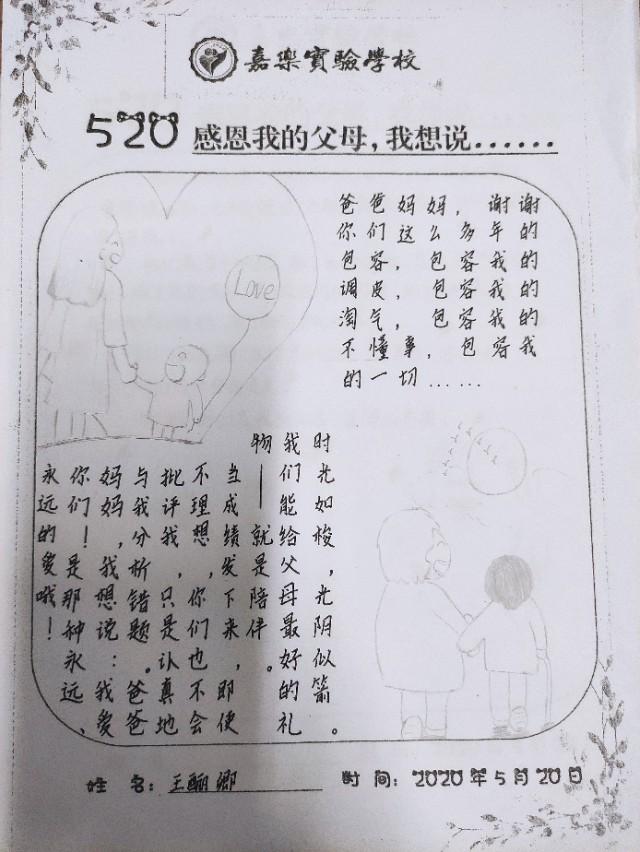 嘉乐實驗學校
520 感恩我的父母，我想说……
爸爸妈妈，谢谢
你们这么多年的
包容，包容我的
调皮，包容我的
淘气，包容我的
不懂事，包容我
的一切……
Love
时光如梭，光阴似箭。
我们能给父母最好的礼
物——就是陪伴。
当成绩发下来，即使
不理想，你们也不会
批评我，只是认真地
与我分析错题。爸爸
妈妈，我想说：我爱
你们！是那种永远、
永远的爱哦！
姓名：王 时间：2020年5月20日